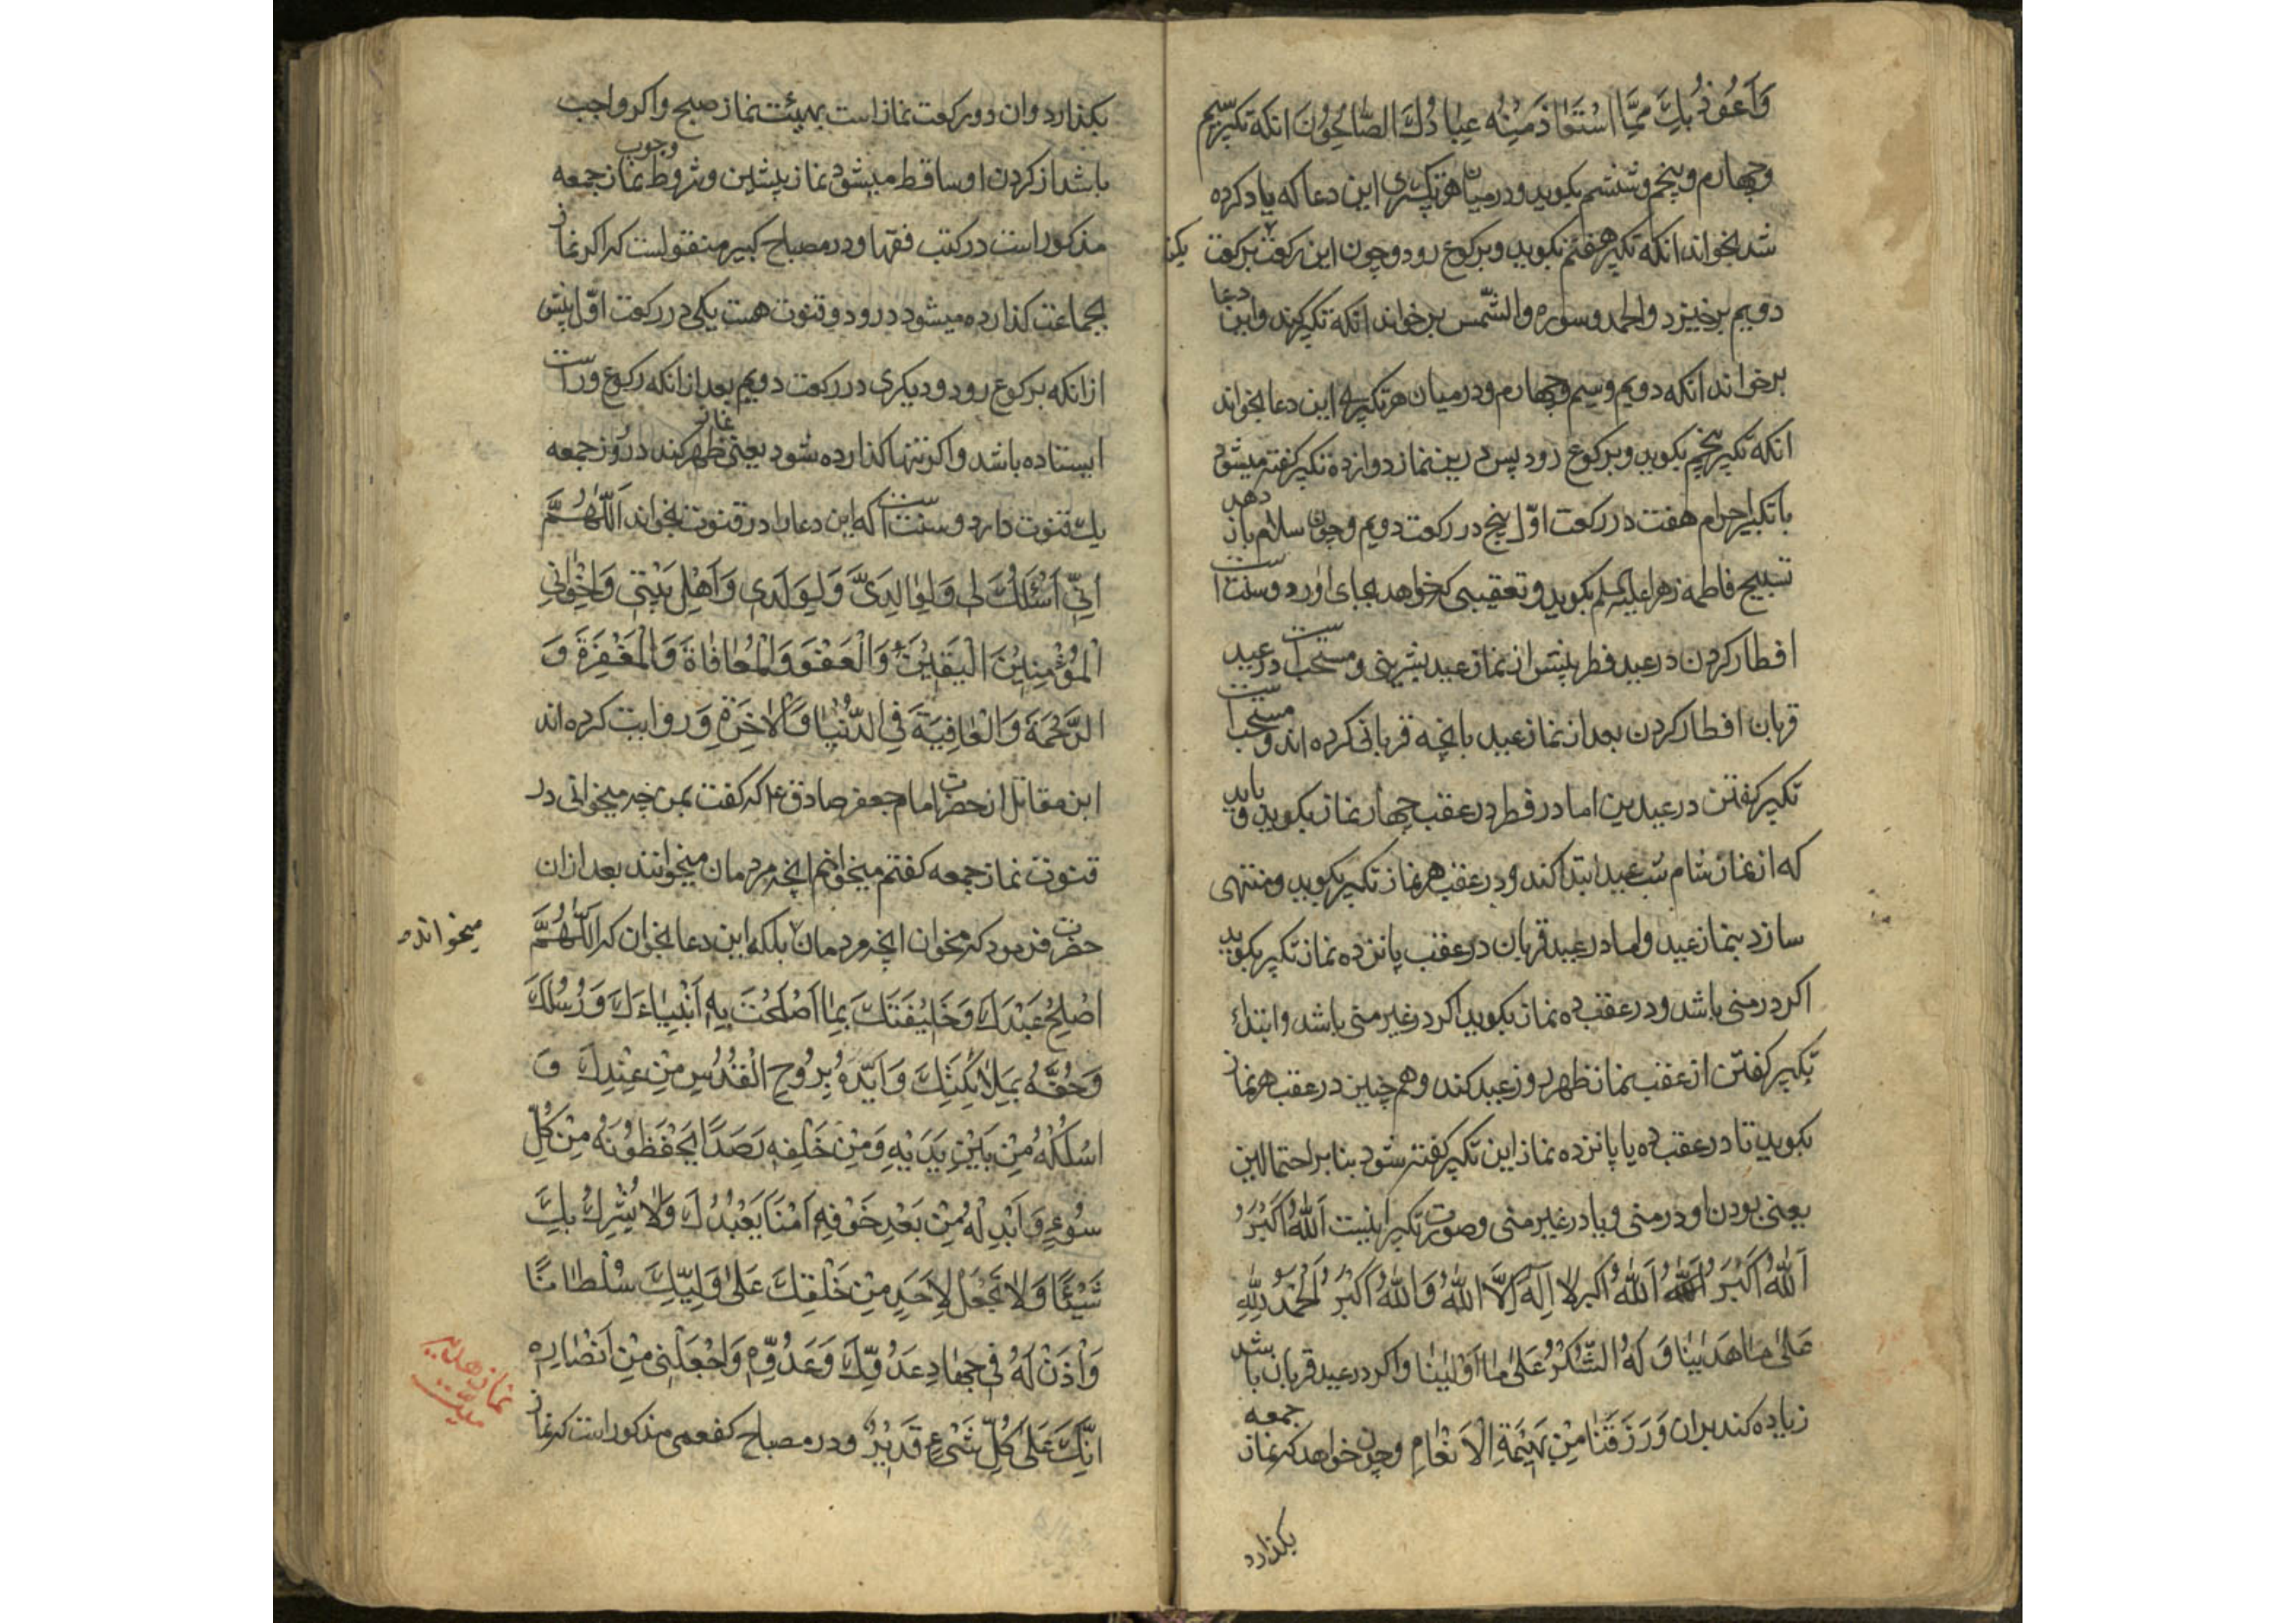 وَاَعُوذُ بِكَ مِمَّا اسْتَعَاذَ مِنْهُ عِبَادُكَ الصَّالِحُونَ انكه تكبير سيم
وچهارم وپنجم وششم بكويد ودرميان هر تكبيرى اين دعا كه ياد كرده
شد بخواند انكه تكبير هفتم بكويد وبركوع رود وچون اين ركعت بركعت
دويم برخيزد والحمد وسوره والشّمس برخواند انكه تكبير كند واين دعا
برخواند انكه دويم وسيم وچهارم ودرميان هر تكبير اين دعا بخواند
انكه تكبير پنجم بكويد وبركوع رود پس درين نماز دوازده تكبير كفته ميشود
با تكبير احرام هفت در ركعت اوّل پنج در ركعت دويم وچون سلام باز دهد
تسبيح فاطمه زهرا عليها السلم بكويد وتعقيبى كه خواهد بجاى اورد وسنت است
افطار كردن در عيد فطر پيش از نماز عيد بشيرينى ومستحب است در عيد
قربان افطار كردن بعد از نماز عيد بانچه قربانى كرده اند ومستحب است
تكبير كفتن در عيدين اما در فطر در عقب چهار نماز بكويد وبايد
كه از نماز شام شب عيد ابتدا كند ودر عقب هر نماز تكبير بكويد ومنتهى
سازد بنماز عيد واما در عيد قربان در عقب پانزده نماز تكبير بكويد
اكر در منى باشد ودر عقب ده نماز بكويد اكر در غير منى باشد وابتداء
تكبير كفتن از عقب نماز ظهر روز عيد كند وهم چنين در عقب هر نماز
بكويد تا در عقب ده يا پانزده نماز اين تكبير كفته شود بنا بر احتمالين
يعنى بودن او در منى ويا در غير منى وصورت تكبير اينست اَللّٰهُ اَكْبَرُ
اَللّٰهُ اَكْبَرُ اَللّٰهُ اَكبر لا اِلٰهَ اِلَّا اللّٰهُ وَاللّٰهُ اَكْبَرُ اَلْحَمْدُ لِلّٰهِ
عَلىٰ مٰا هَدٰينٰا وَ لَهُ الشُّكْرُ عَلىٰ مٰا اَوْليٰنٰا واكر در عيد قربان باشد
زياده كند بران وَرَزَقَنٰا مِنْ بَهيمَةِ الْاَنْعٰامِ وچون خواهد كه نماز جمعه
بكذارد
بكذارد وان دو ركعت نماز است بهيئت نماز صبح واكر واجب
باشد از كردن او ساقط ميشود نماز پيشين وشروط وجوب نماز جمعه
مذكور است در كتب فقها ودر مصباح كبير منقولست كه اكر نماز
بجماعت كذارده ميشود درو دو قنوت هست يكى در ركعت اوّل پيش
از انكه بركوع رود وديكرى در ركعت دويم بعد از انكه ركوع وراست
ايستاده باشد واكر تنها كذارده شود يعنى نماز ظهر كند در روز جمعه
يك قنوت دارد وسنت است كه اين دعا را در قنوت بخواند اَللّٰهُمَّ
اِنّى اَسْئَلُكَ لى وَلِوٰالِدَىَّ وَلِوَلَدى وَاَهْلِ بَيْتى وَاِخْوٰانِى
الْمُؤْمِنِينَ الْيَقينَ وَالْعَفْوَ وَالْمُعٰافٰاةَ وَالْمَغْفِرَةَ وَ
الرَّحْمَةَ وَالْعٰافِيَةَ فِى الدُّنْيٰا وَالْاٰخِرَةِ وَروايت كرده اند
ابن مقاتل از حضرت امام جعفر صادق ع كه كفت بمن چه ميخوانى در
قنوت نماز جمعه كفتم ميخوانم انچه مردمان ميخوانند بعد ازان
حضرت فرمود كه مخوان انچه مردمان بلكه اين دعا بخوان كه اَللّٰهُمَّ
ميخوانند
اَصْلِحْ عَبْدَكَ وَخَليفَتَكَ بِمٰا اَصْلَحْتَ بِهِ اَنْبِيٰاءَكَ وَرُسُلَكَ
وَحُفَّهُ بِمَلٰائِكَتِكَ وَاَيِّدْهُ بِرُوحِ الْقُدُسِ مِنْ عِنْدِكَ وَ
اسْلُكْهُ مِنْ بَيْنِ يَدَيْهِ وَمِنْ خَلْفِهِ رَصَدًا يَحْفَظُونَهُ مِنْ كُلِّ
سُوءٍ وَاَبْدِلْهُ مِنْ بَعْدِ خَوْفِهِ اَمْنًا يَعْبُدُكَ وَلٰا يُشْرِكُ بِكَ
شَيْئًا وَلٰا تَجْعَلْ لِاَحَدٍ مِنْ خَلْقِكَ عَلىٰ وَلِيِّكَ سُلْطٰانًا
وَاْذَنْ لَهُ فى جِهٰادِ عَدُوِّكَ وَعَدُوِّهِ وَاجْعَلْنى مِنْ اَنْصٰارِهِ
اِنَّكَ عَلىٰ كُلِّ شَىْءٍ قَديرٌ ودر مصباح كفعمى مذكور است كه نماز
نماز هديه